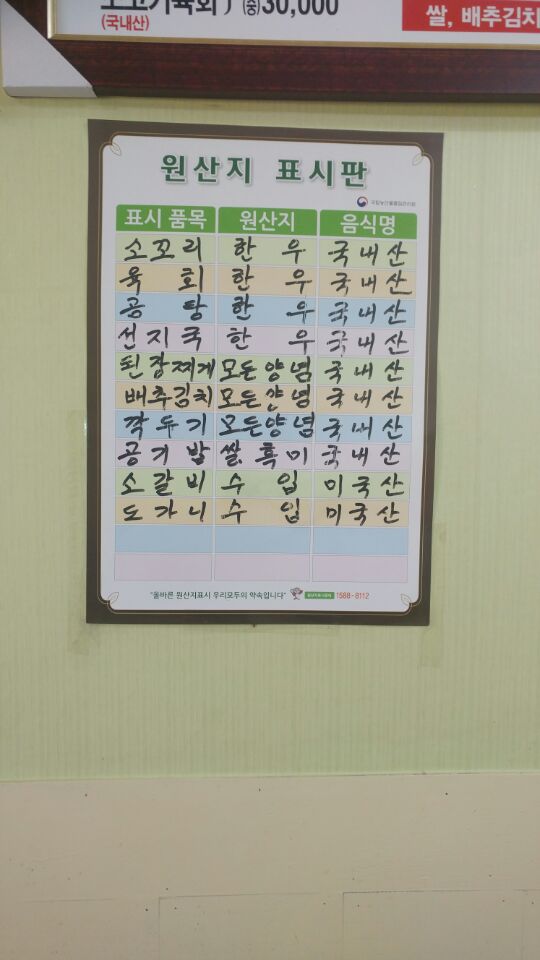 소고기육회 ) (중)30,000
(국내산)
쌀, 배추김치
원산지 표시판
표시 품목 원산지 음식명
소꼬리 한 우 국내산
육 회 한 우 국내산
곰 탕 한 우 국내산
선지국 한 우 국내산
된장찌게 모든양념 국내산
배추김치 모든양념 국내산
깍두기 모든양념 국내산
공기밥 쌀.흑미 국내산
소갈비 수 입 미국산
도가니 수 입 미국산
"올바른 원산지표시 우리모두의 약속입니다" 1588-8112